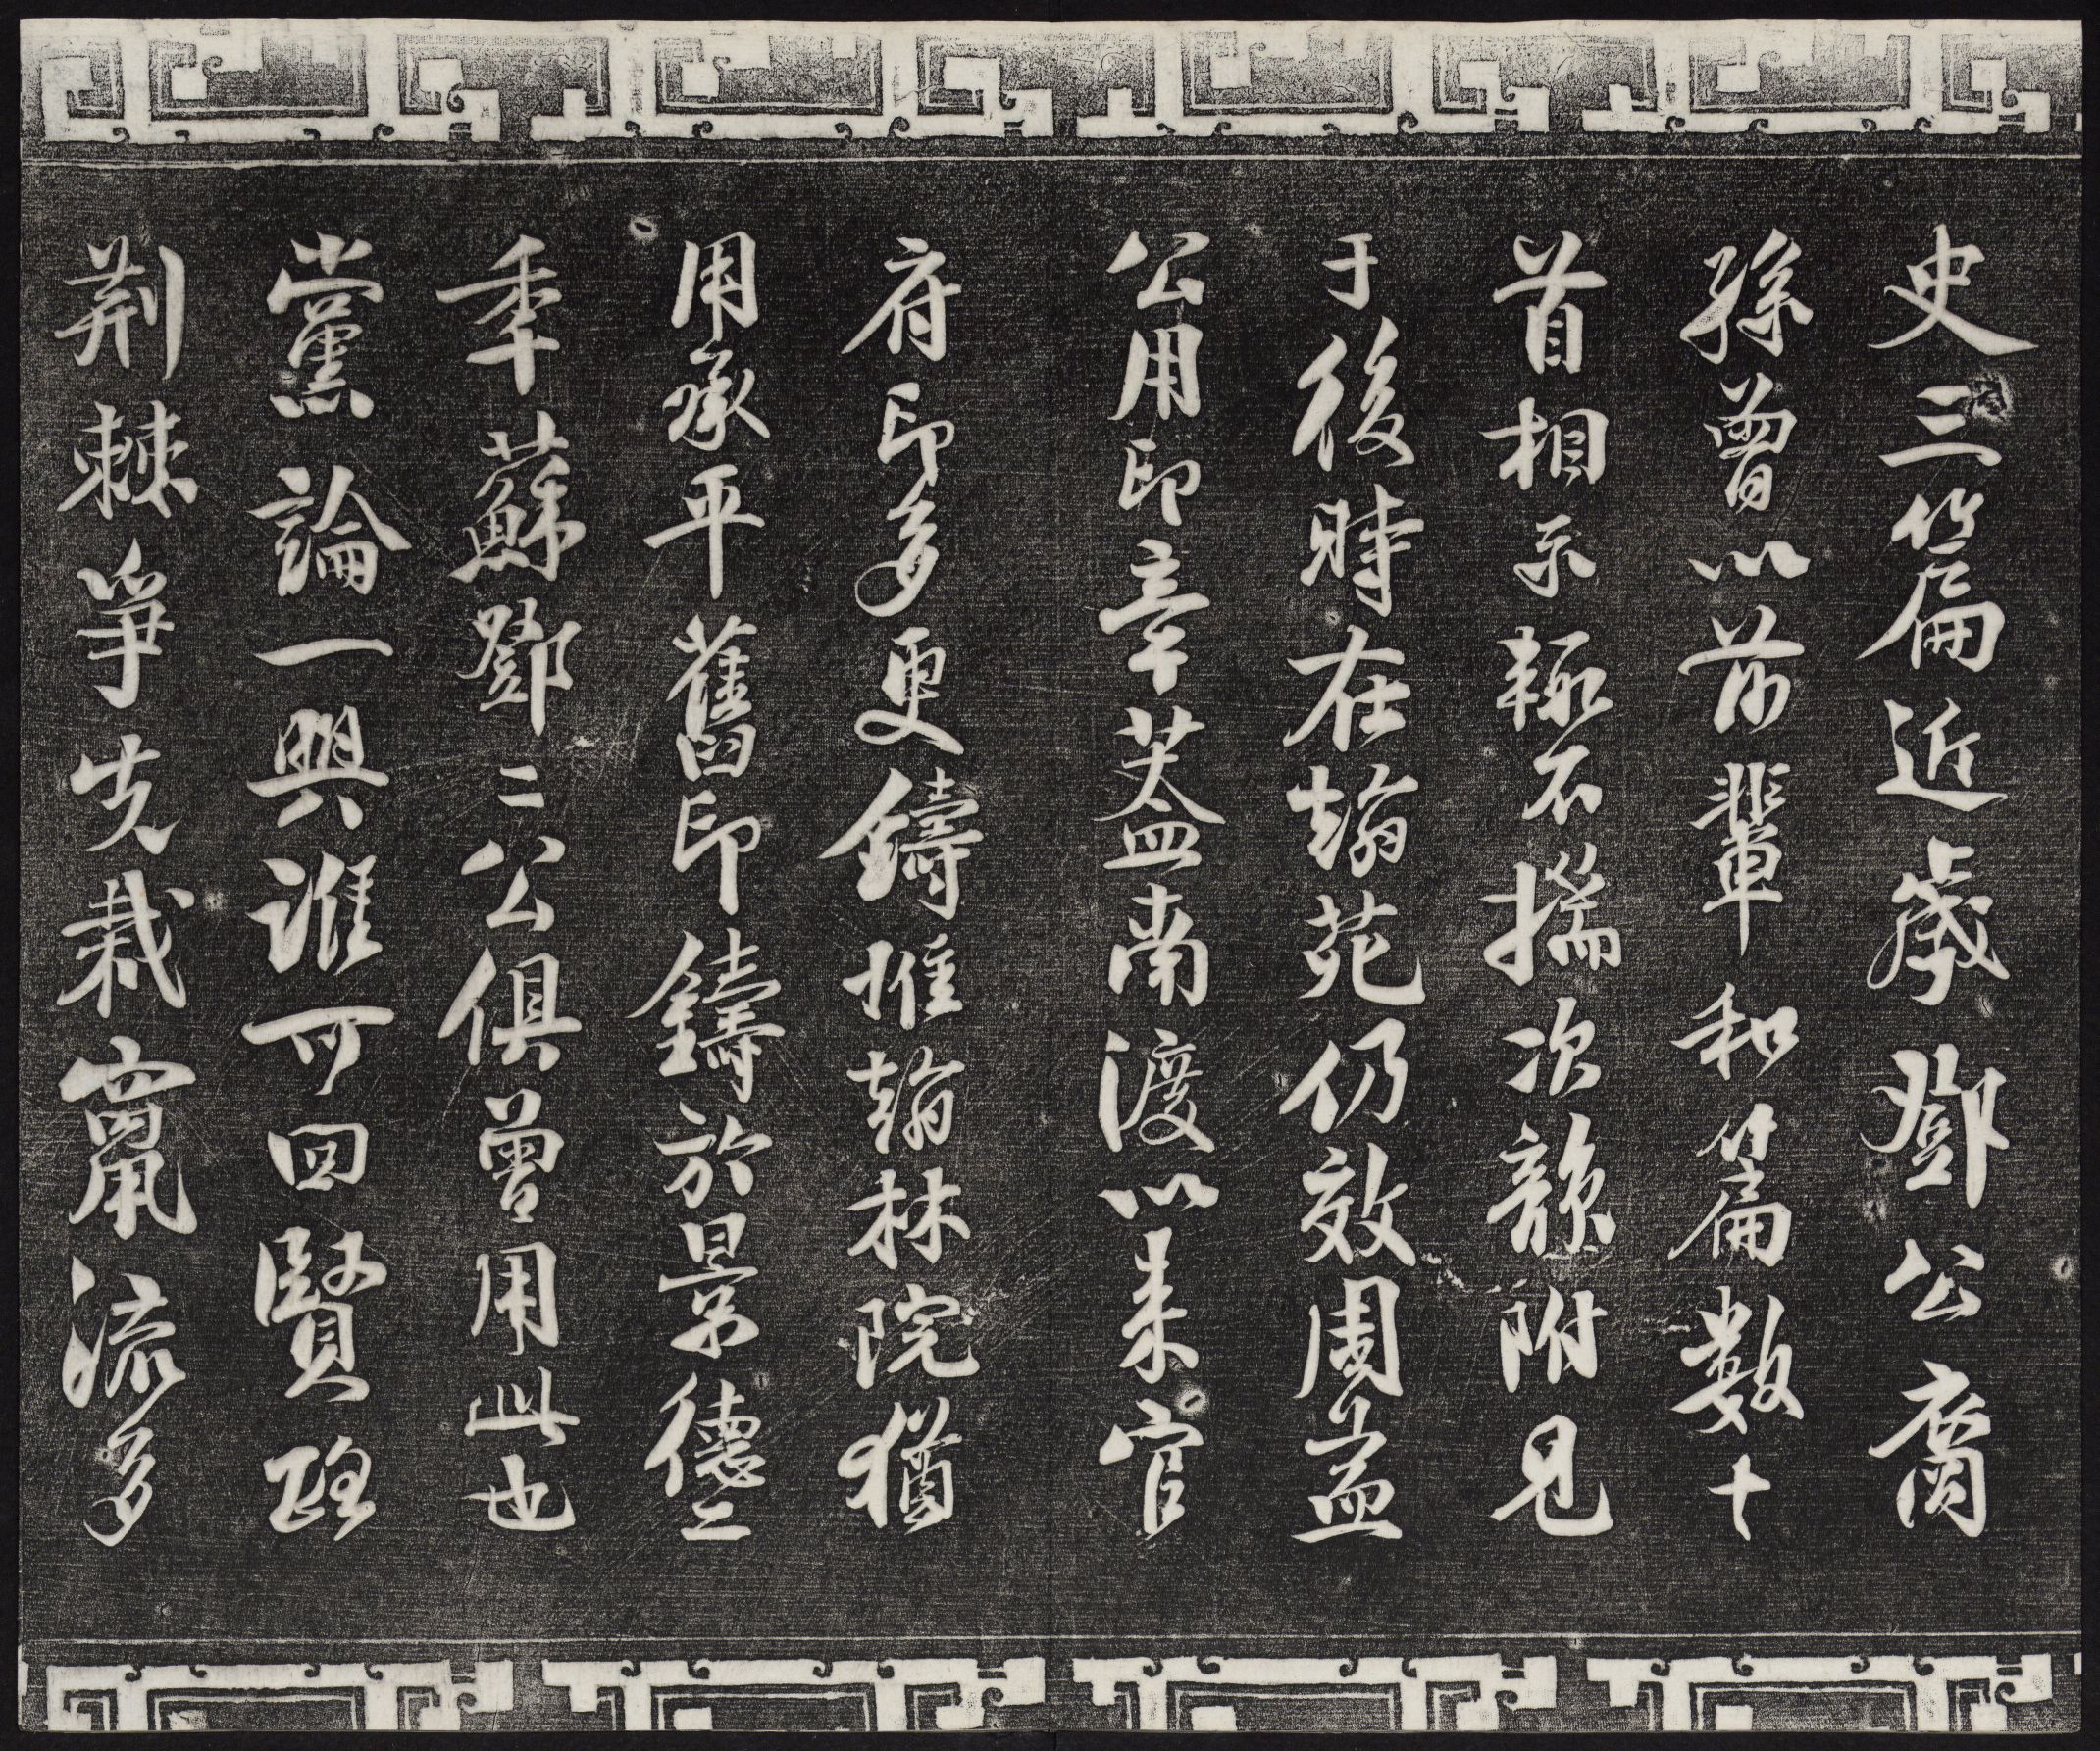 史三篇近歲鄧公裔
孫曾以前輩和篇數十
首相示輒不揣次韻附見
于後時在翰苑仍效周益
公用印章蓋南渡以來官
府印多更鑄惟翰林院猶
用承平舊印鑄於景德二
年蘇鄧二公俱曾用此也
黨論一興誰可回賢路
荆棘爭先栽竄流多